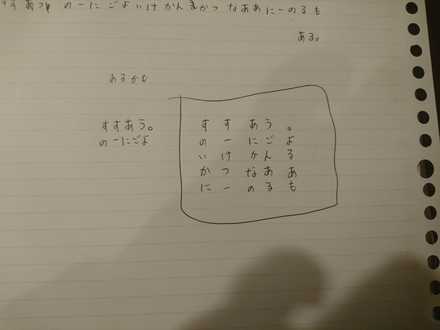 の ー に ご よ い け か ん る か つ な あ あ に ー の る も
ある。
あるかも
すすあう。
の一にごよ
す す あ う 。
の ー に ご よ
い け か ん る
か つ な あ あ
に ー の る も